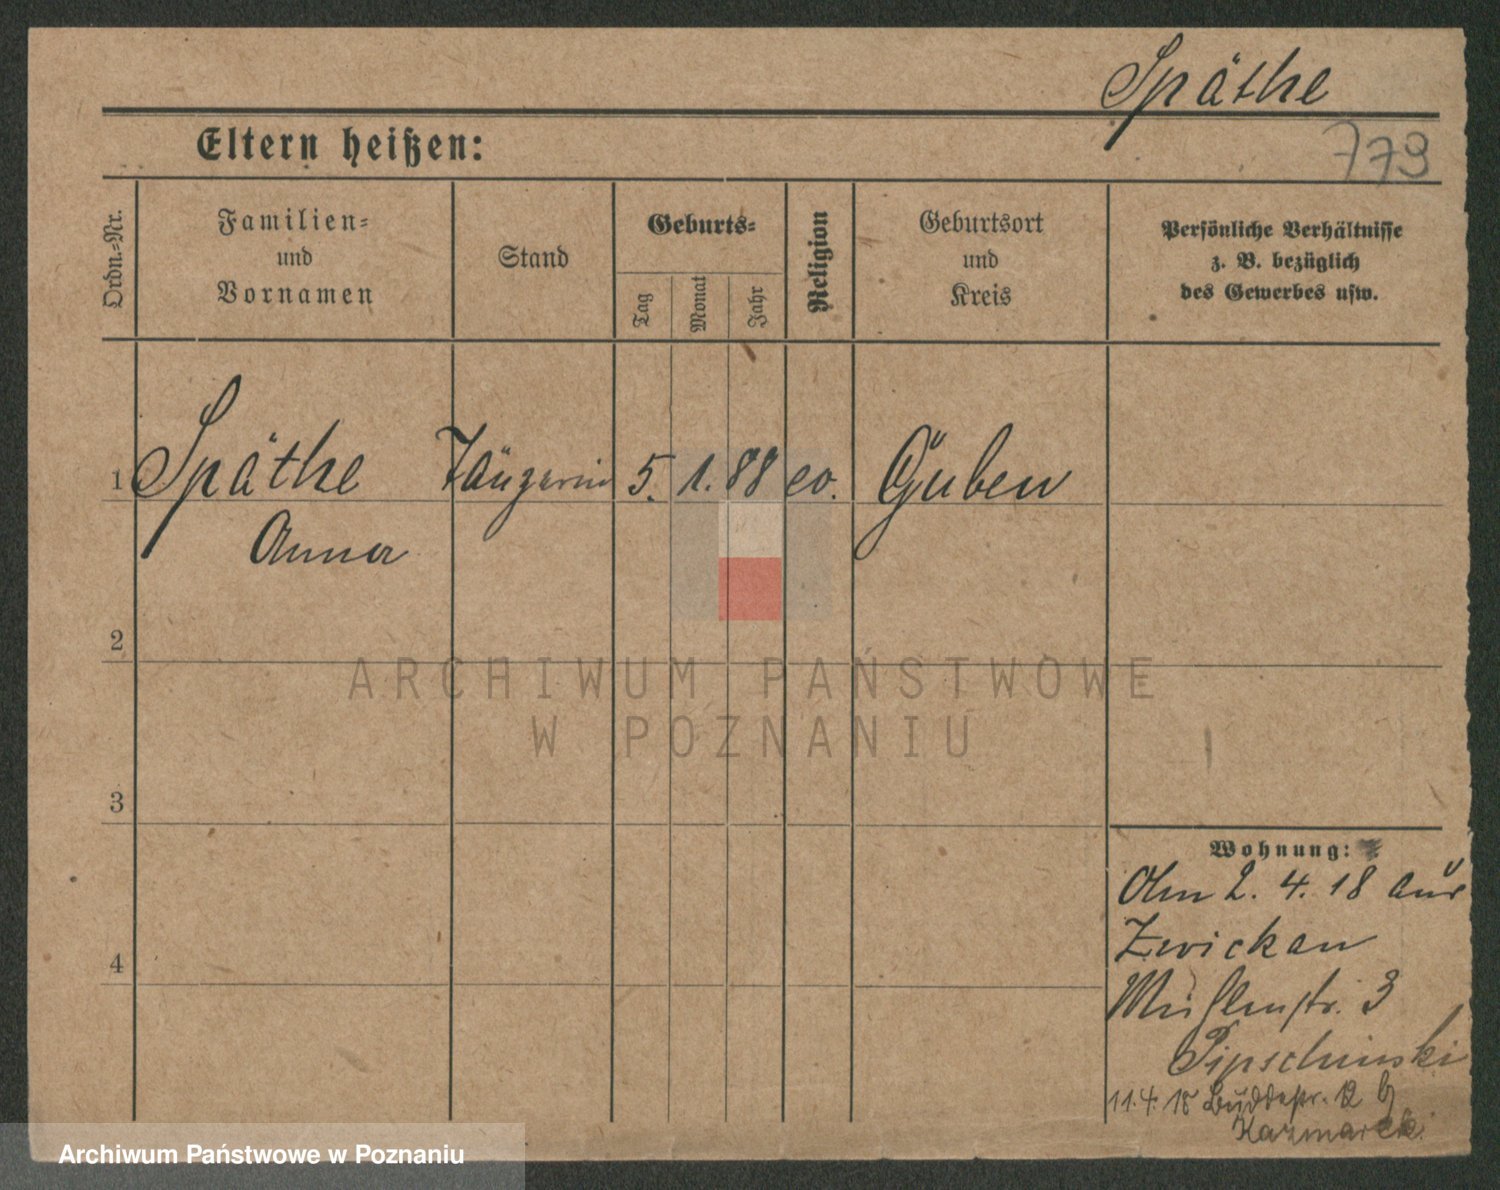 Späthe
Eltern heißen:
779
Ordn.=Nr.
Familien=
und
Vornamen
Stand
Geburts=
Tag
Monat
Jahr
Religion
Geburtsort
und
Kreis
Persönliche Verhältnisse
z. B. bezüglich
des Gewerbes usw.
1 Späthe Tänzerin 5. 1. 88 ev. Guben
Anna
2
ARCHIWUM PAŃSTWOWE
W POZNANIU
3
Wohnung:
2. 4. 18 aus
Zwickau
Mühlenstr. 3
Pipschinski
11.4.18 Buddestr. 12 b
Kazmarek
4
Archiwum Państwowe w Poznaniu